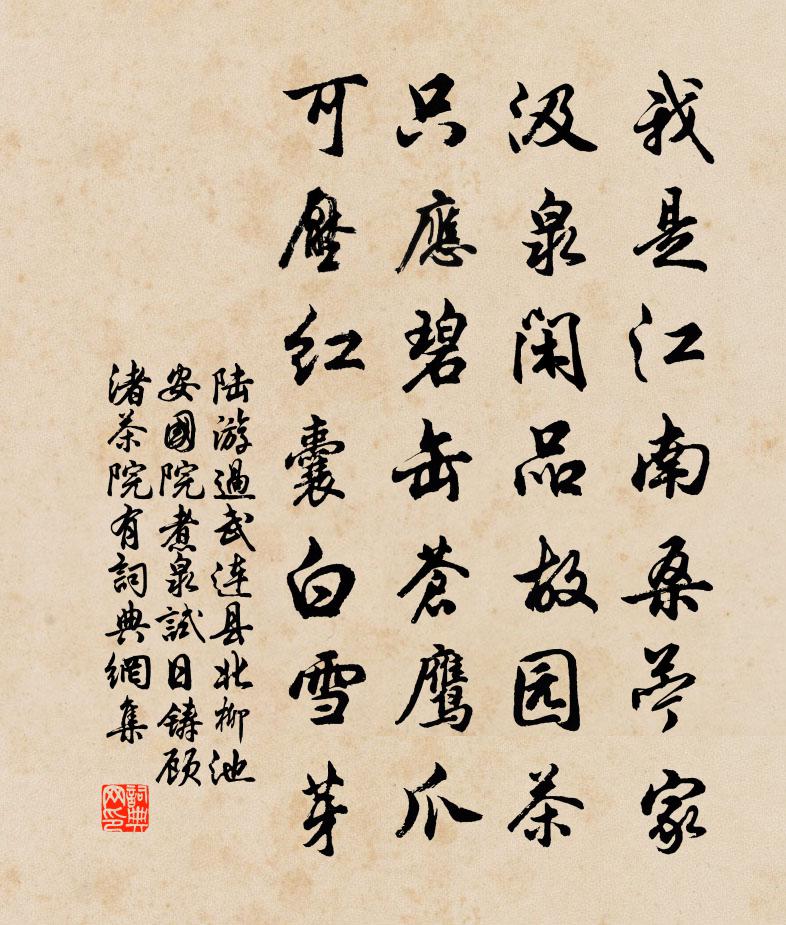 我是江南桑苧家
汲泉闲品故园茶
只應碧缶蒼鷹爪
可壓红囊白雪芽
陆游過武連县北柳池
安國院煮泉試日鑄顾
渚茶院有詞典網集
詞典网印